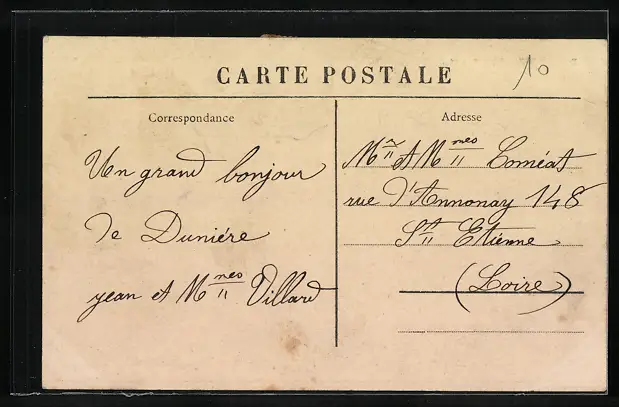 CARTE POSTALE
10
Correspondance
Un grand bonjour
de Duniére
jean et M^nes Villard
Adresse
M^r et M^nes Coméat
rue d'Annonay 148
S^t Etienne
(Loire)